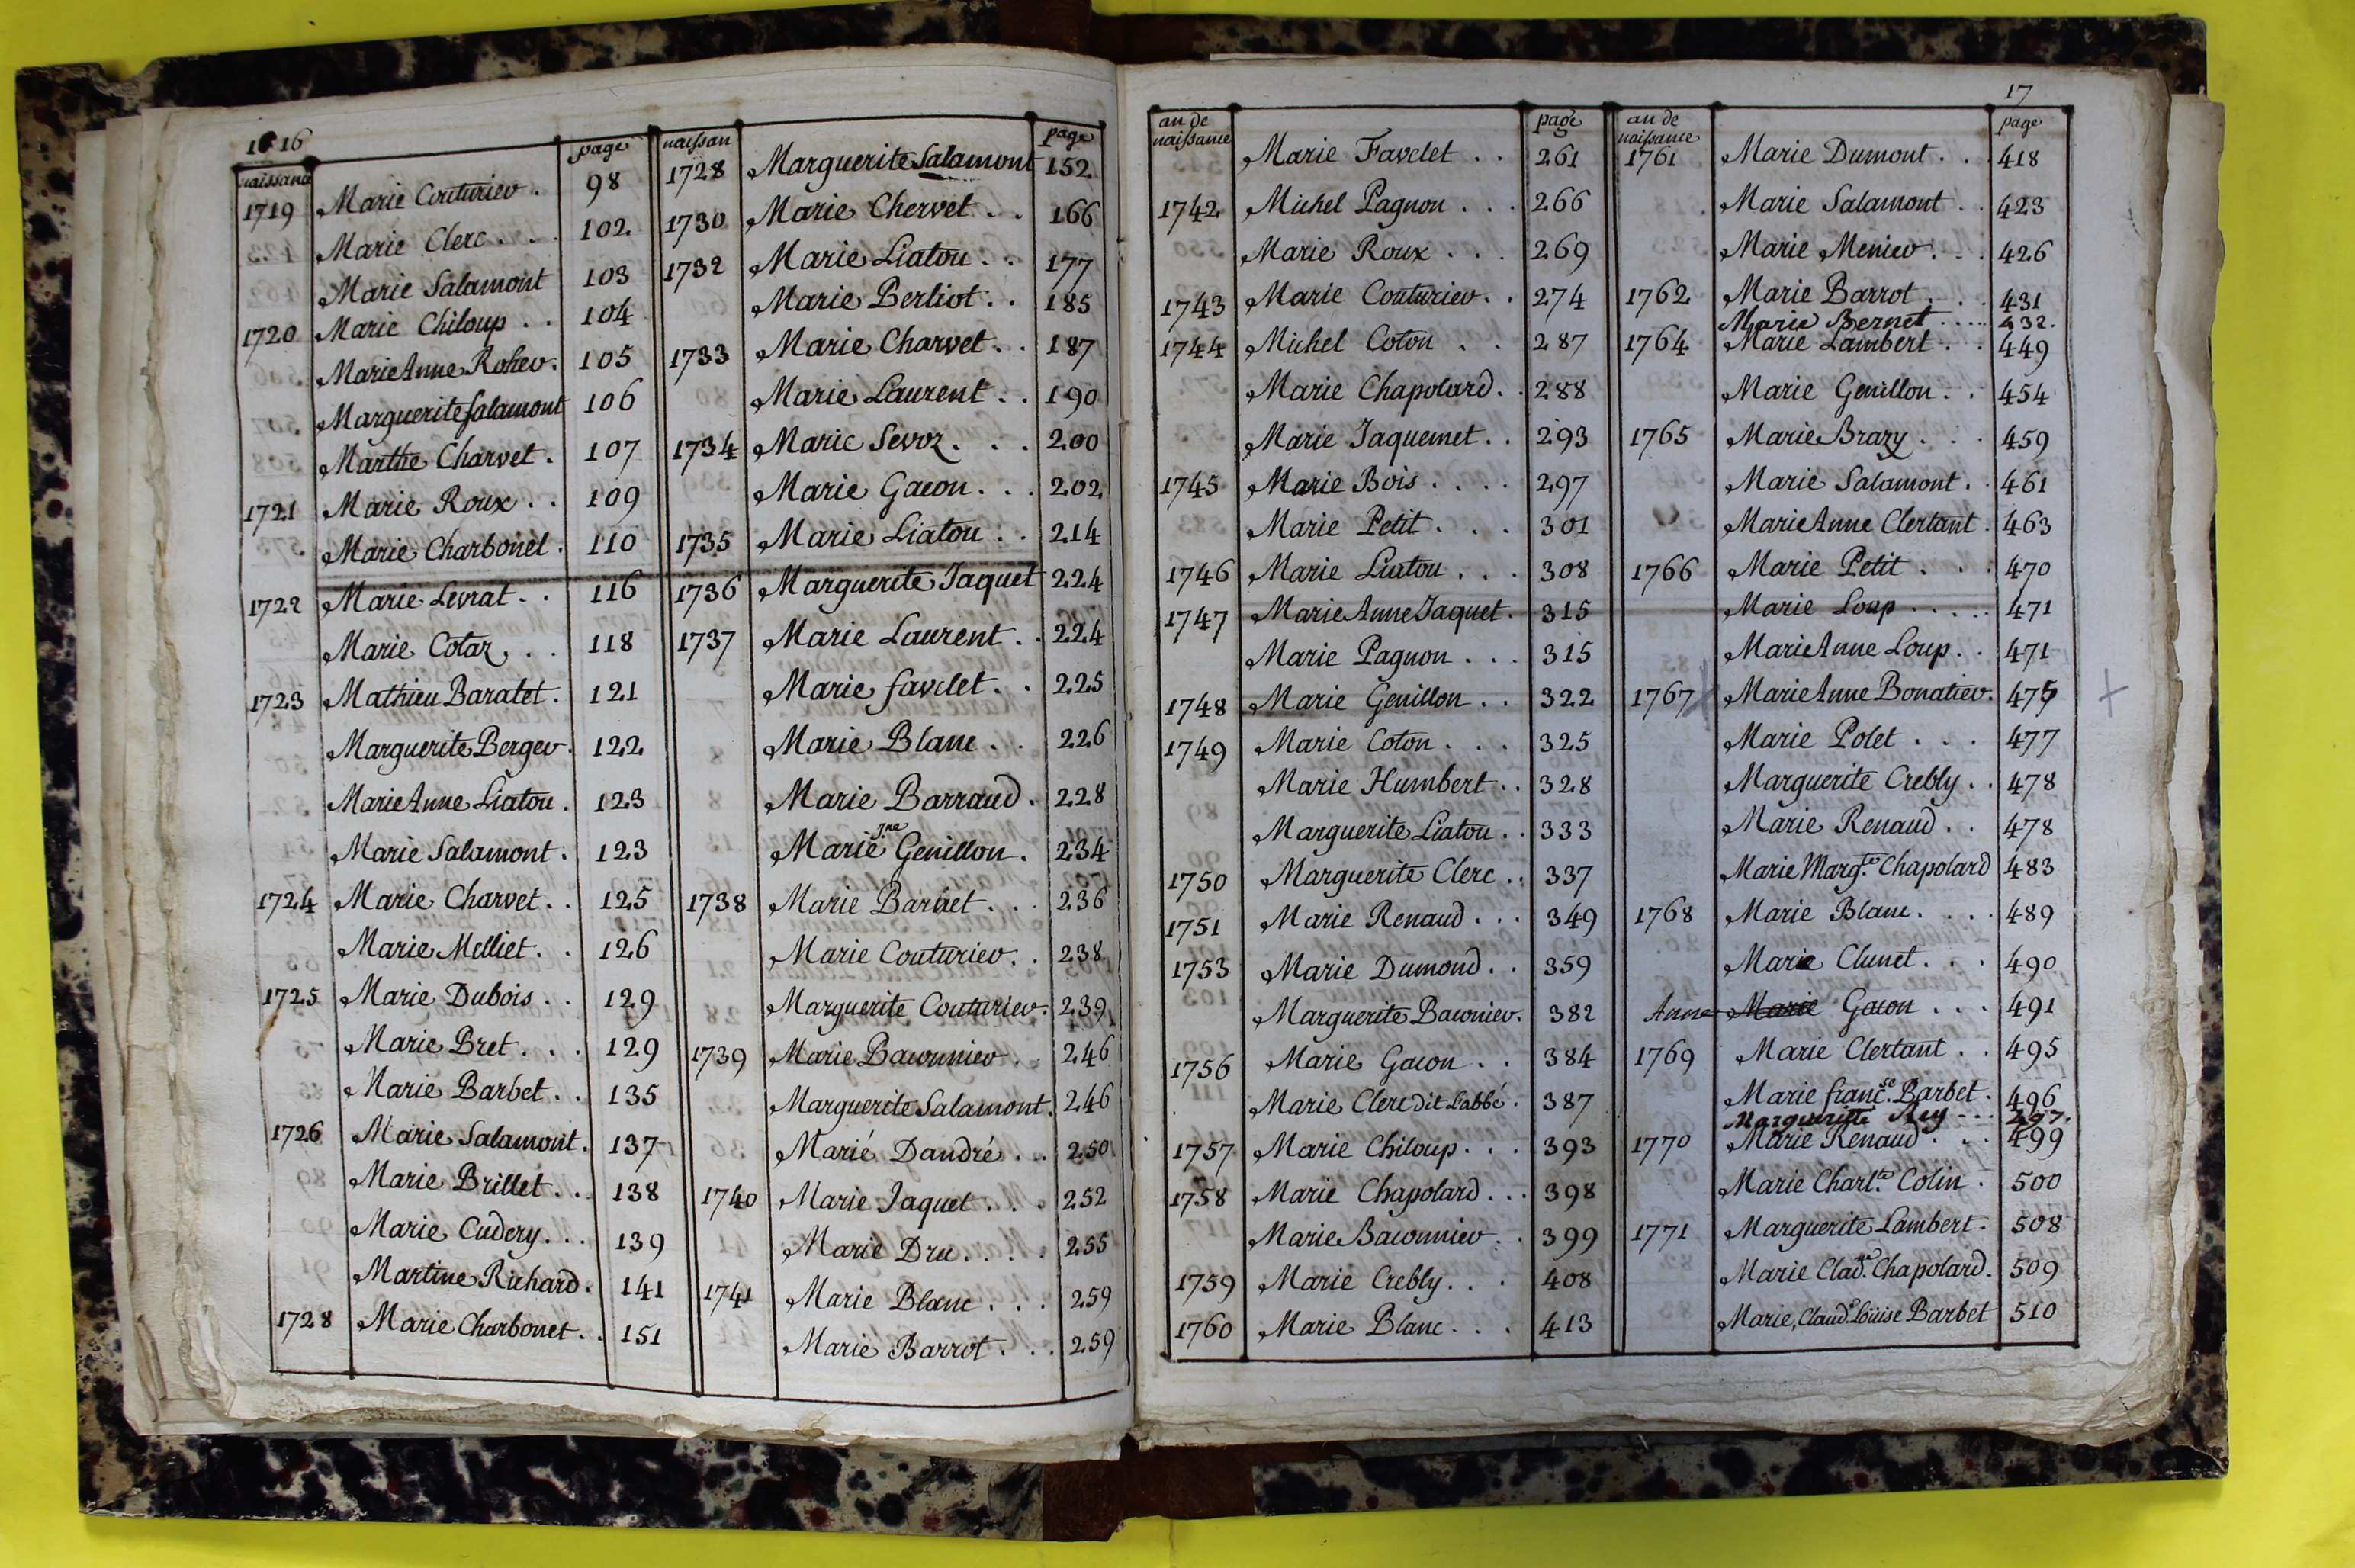 16
naissance page
1719 Marie Couturier . 98
Marie Clerc . . . 102
Marie Salamont 103
1720 Marie Chiloup . . 104
Marie Anne Roher . 105
Marguerite Salamont 106
Marthe Charvet . 107
1721 Marie Roux . . 109
Marie Charbonet . 110
1722 Marie Levrat . . 116
Marie Cotaz . . . 118
1723 Mathieu Baratet . 121
Marguerite Berger . 122
Marie Anne Liatou . 123
Marie Salamont . 123
1724 Marie Charvet . . 125
Marie Melliet . . 126
1725 Marie Dubois . . 129
Marie Bret . . . 129
Marie Barbet . . 135
1726 Marie Salamont . 137
Marie Brillet . . . 138
Marie Cudery . . . 139
Martine Richard . 141
1728 Marie Charbonet . . 151
naissan page
1728 Marguerite Salamont 152
1730 Marie Chervet . . 166
1732 Marie Liatou . . 177
Marie Berliot . . 185
1733 Marie Charvet . . 187
Marie Laurent . . 190
1734 Marie Sevoz . . . 200
Marie Gacon . . . 202
1735 Marie Liatou . . 214
1736 Marguerite Jaquet 224
1737 Marie Laurent . . 224
Marie favelet . . 225
Marie Blanc . . 226
Marie Barraud . 228
Marie Jne Genillon . 234
1738 Marie Barnet . . . 236
Marie Couturier . . 238
Marguerite Couturier . 239
1739 Marie Baconnier . . 246
Marguerite Salamont . 246
Marie Dandré . . . 250
1740 Marie Jaquet . . . 252
Marie Dru . . . . 255
1741 Marie Blanc . . . 259
Marie Barrot . . . 259
17
an de naissance page
Marie Favelet . . 261
1742 Michel Pagnon . . . 266
Marie Roux . . . 269
1743 Marie Couturier . . 274
1744 Michel Coton . . 287
Marie Chapolard . . 288
Marie Jaquemet . . 293
1745 Marie Bois . . . . 297
Marie Petit . . . 301
1746 Marie Liatou . . . 308
1747 Marie Anne Jaquet . 315
Marie Pagnon . . . 315
1748 Marie Genillon . . 322
1749 Marie Coton . . . 325
Marie Humbert . . 328
Marguerite Liatou . . 333
1750 Marguerite Clerc . . 337
1751 Marie Renaud . . . 349
1753 Marie Dumond . . 359
Marguerite Baconier . 382
1756 Marie Gacon . . 384
Marie Clerc dit Labbé . 387
1757 Marie Chiloup . . . 393
1758 Marie Chapolard . . . 398
Marie Baconnier . . 399
1759 Marie Crebly . . . 408
1760 Marie Blanc . . . 413
an de naissance page
1761 Marie Dumont . . 418
Marie Salamont . . 423
Marie Menier . . . 426
1762 Marie Barrot . . . 431
Marie Bernet . . . . 432.
1764 Marie Lambert . . 449
Marie Genillon . . 454
1765 Marie Brazy . . . 459
Marie Salamont . . 461
Marie Anne Clertant . 463
1766 Marie Petit . . . 470
Marie Loup . . . . . 471
Marie Anne Loup . . 471
1767 Marie Anne Bonatier . 475
Marie Polet . . . 477
Marguerite Crebly . . 478
Marie Renaud . . 478
Marie Margte Chapolard 483
1768 Marie Blanc . . . . 489
Marie Clunet . . . 490
Anne Marie Gacon . . . 491
1769 Marie Clertant . . 495
Marie francse Barbet . 496
Margueritte Rey . . . 497.
1770 Marie Renaud . . . 499
Marie Charlte Colin . 500
1771 Marguerite Lambert . 508
Marie Clade Chapolard . 509
Marie, Claude Loüise Barbet 510